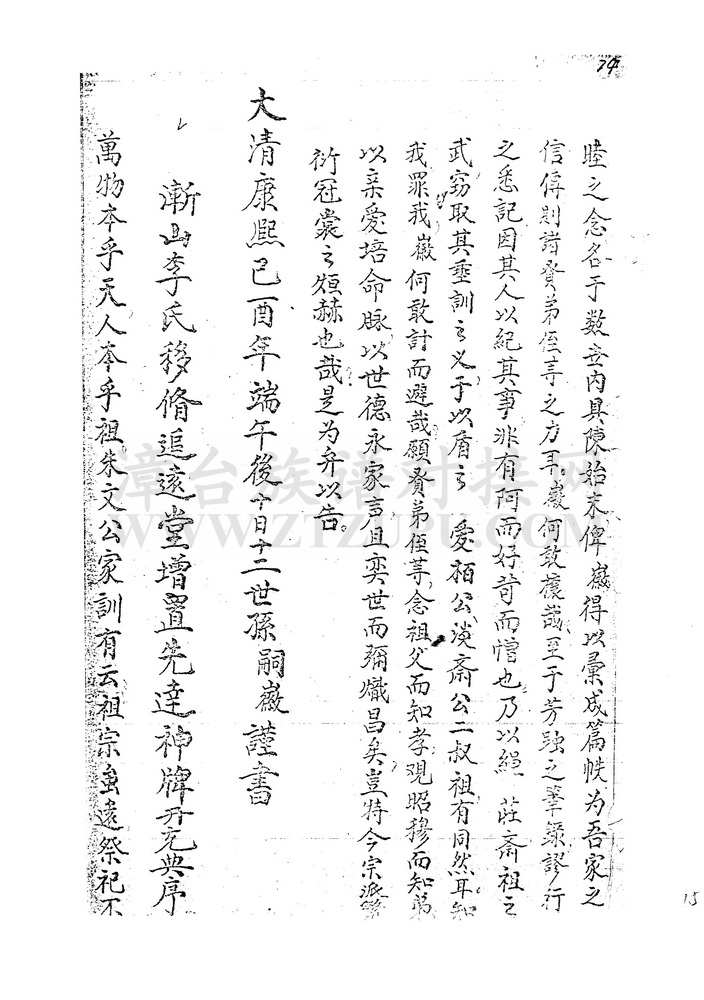 74
睦之念各于数世内具陳始末俾嶽得以彙成篇帙为吾家之
信傳則諸賢弟侄等之力耳嶽何敢攘哉至于芳躅之筆錄謬行
之悉記因其人以紀其事非有阿而好苛而憎也乃以繩 莊斋祖之
武窃取其垂訓之义于以盾之 爱栢公淡斋公二叔祖有同然耳知
我罪我嶽何敢計而避哉願賢弟侄等念祖父而知孝观昭穆而知弟
以亲爱培命脉以世德永家声且奕世而彌熾昌矣豈特今宗派繁
衍冠裳之烜赫也哉是为弁以告。
大清康熙己酉年端午後十日十二世孫嗣嶽謹書
漸山李氏移脩追遠堂增置先達神牌并充典序
萬物本乎天人本乎祖朱文公家訓有云祖宗虽遠祭祀不
15
漳台族谱对接网
WWW.ZTZUPU.COM